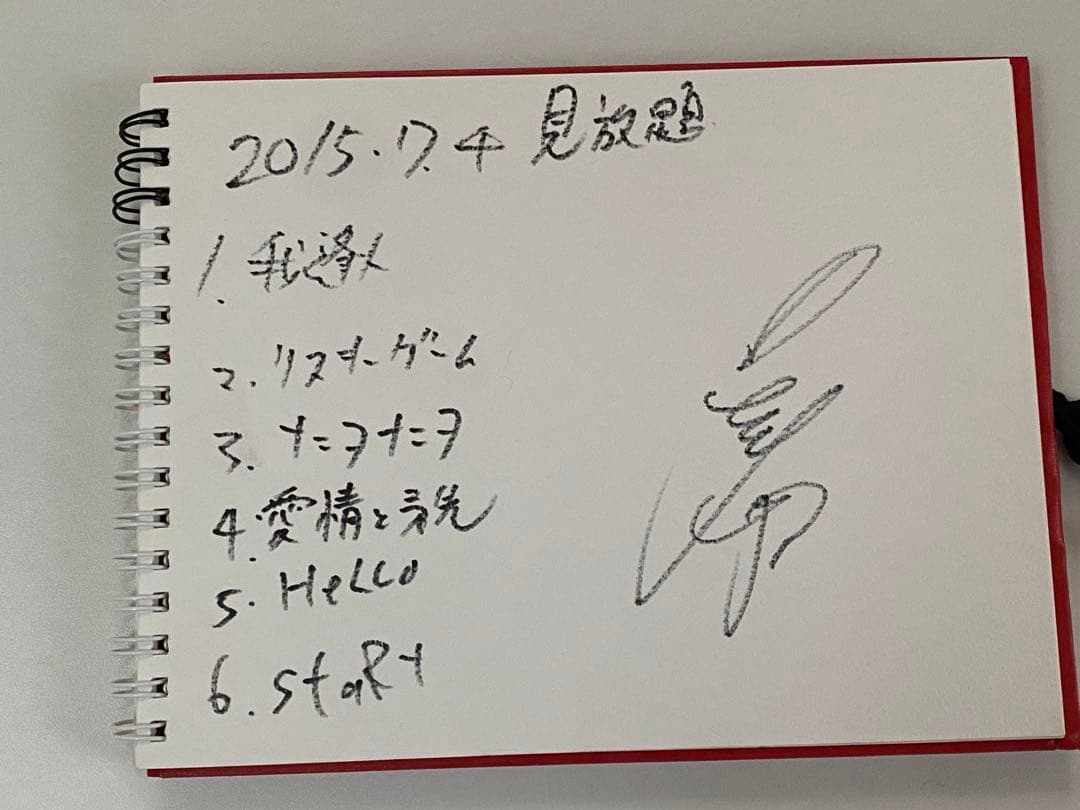 2015.7.4 見放題
1. 我逢人
2. リスキーゲーム
3. ナニヲナニヲ
4. 愛情と矛先
5. HeLLo
6. StaRt